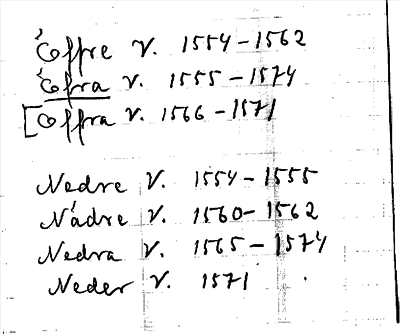 Öffre V. 1554-1562
Öfra V. 1555-1574
[Öffra V. 1566-1571
Nedre V. 1554-1555
Nädre V. 1560-1562
Nedra V. 1565-1574
Neder V. 1571